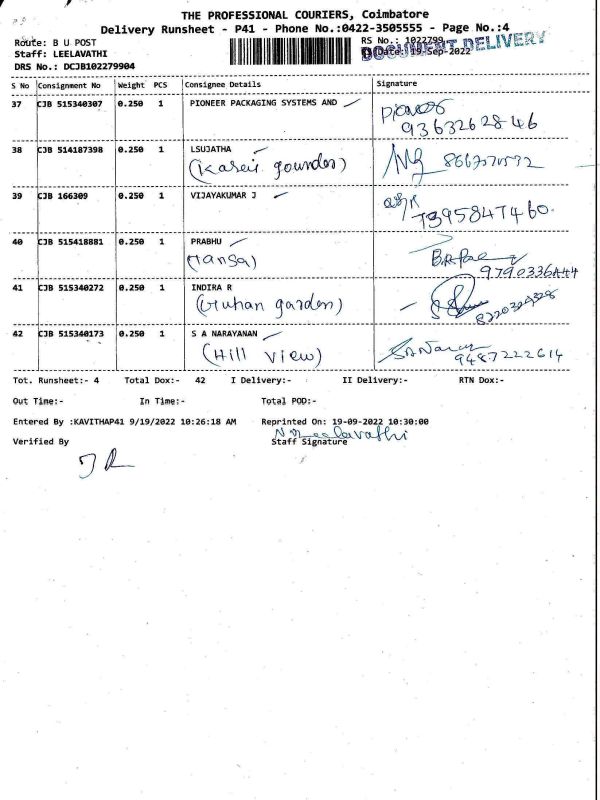 THE PROFESSIONAL COURIERS, Coimbatore
Delivery Runsheet - P41 - Phone No.:0422-3505555 - Page No.:4
Route: B U POST
RS No.: 1022799
DOCUMENT DELIVERY
Staff: LEELAVATHI
Date: 19-Sep-2022
DRS No.: DCJB102279904
S No Consignment No Weight PCS Consignee Details Signature
37 CJB 515340307 0.250 1 PIONEER PACKAGING SYSTEMS AND
9363262846
38 CJB 514187398 0.250 1 LSUJATHA
39 CJB 166309 0.250 1 VIJAYAKUMAR J
7395847460.
40 CJB 515418881 0.250 1 PRABHU
(Tansa)
9790336444
41 CJB 515340272 0.250 1 INDIRA R
(Guhan garden)
8220324328
42 CJB 515340173 0.250 1 S A NARAYANAN
(Hill View)
9487222614
Tot. Runsheet:- 4 Total Dox:- 42 I Delivery:- II Delivery:- RTN Dox:-
Out Time:- In Time:- Total POD:-
Entered By :KAVITHAP41 9/19/2022 10:26:18 AM Reprinted On: 19-09-2022 10:30:00
N Neelavathi
Verified By Staff Signature